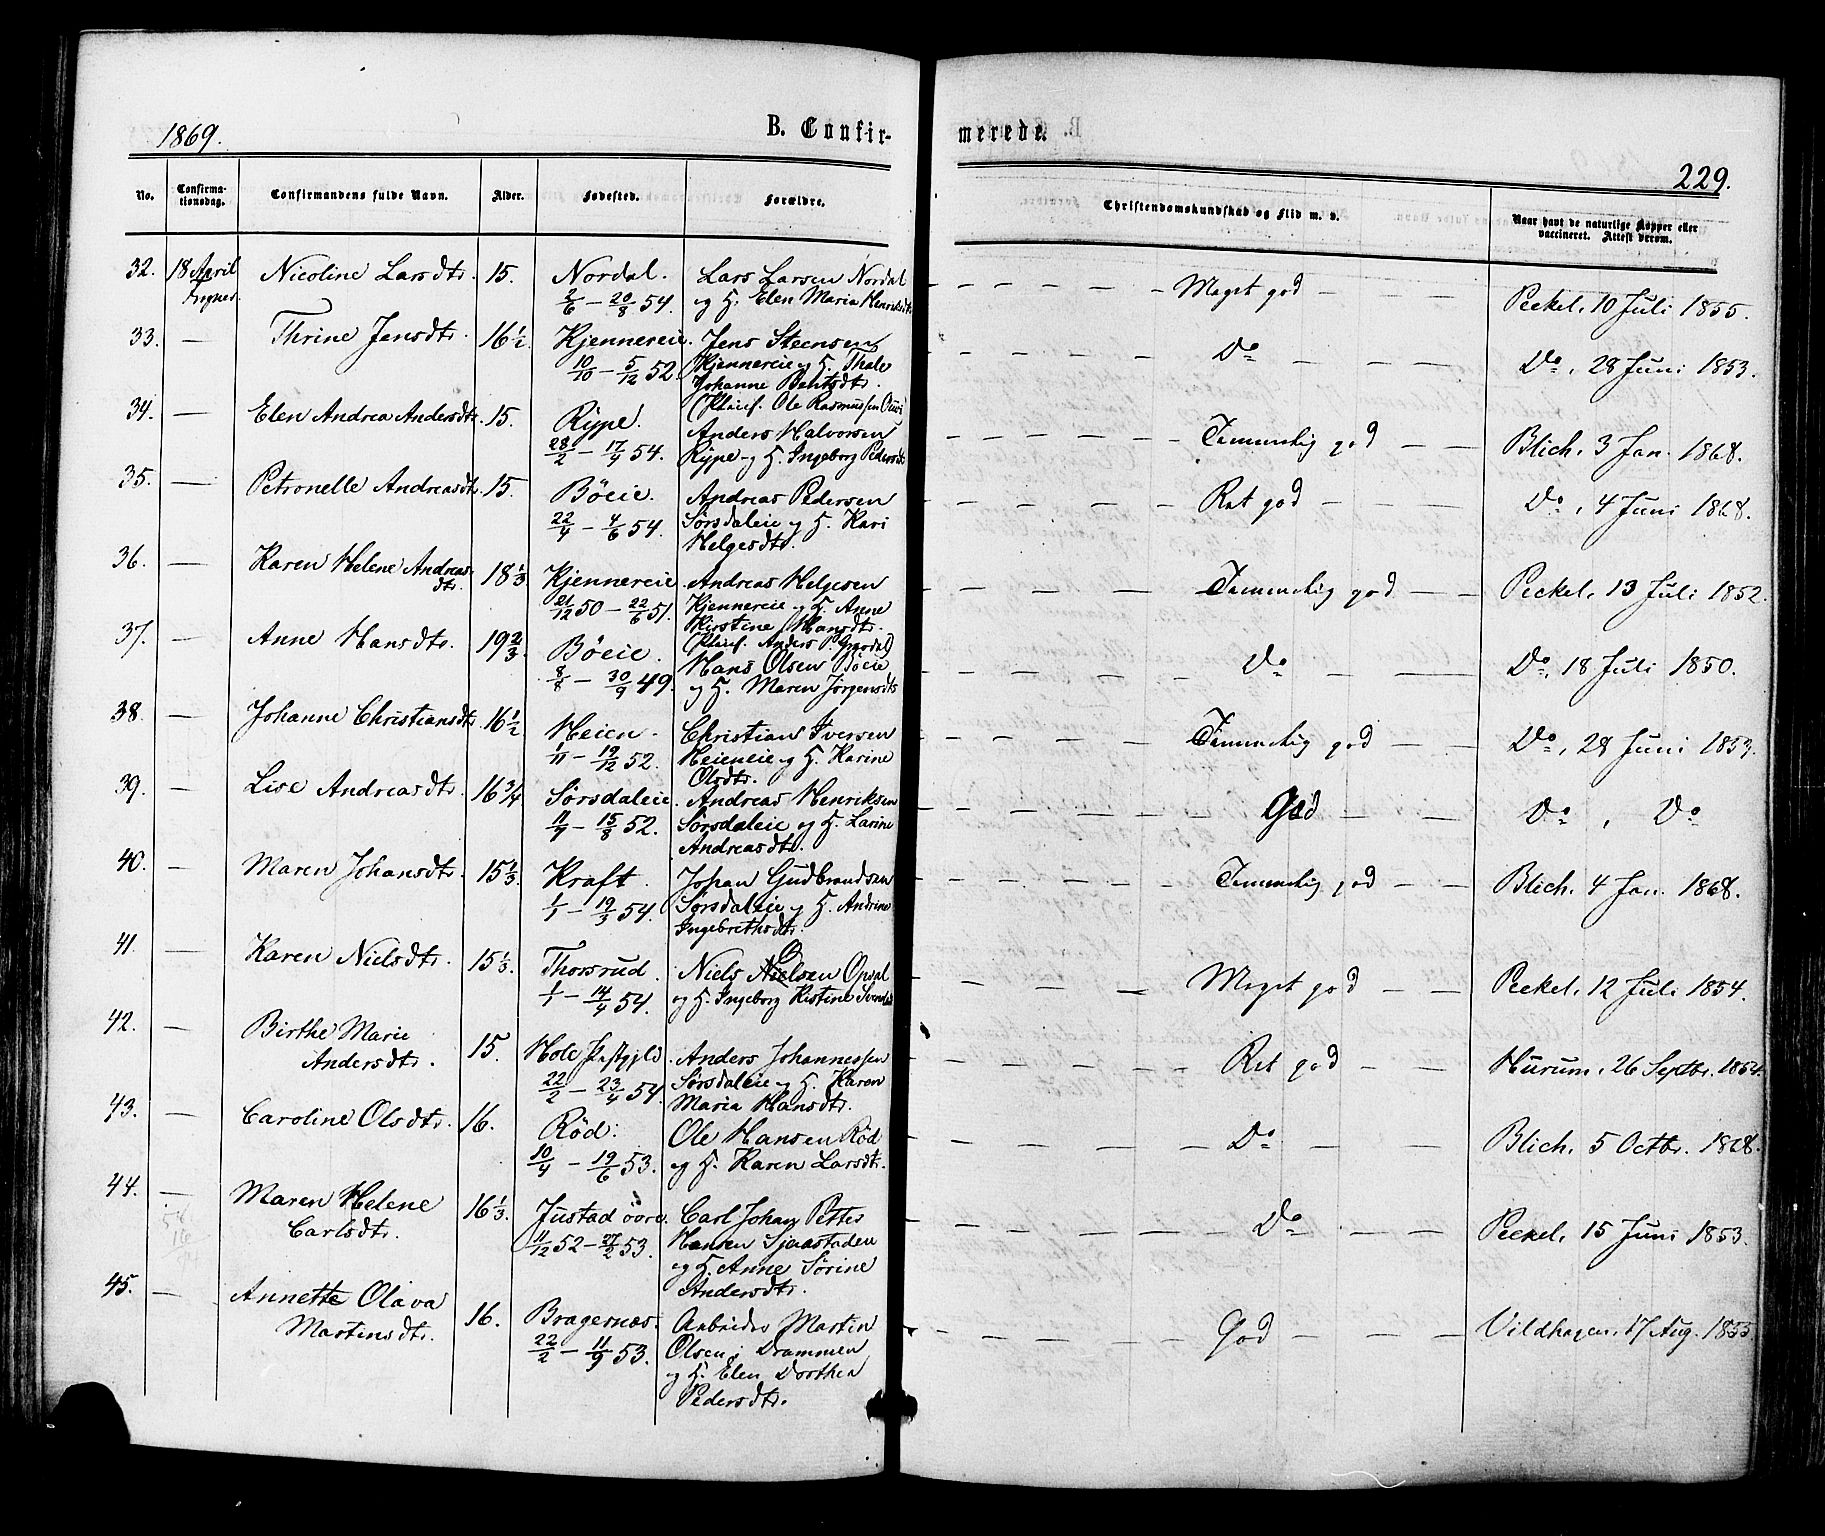 1869.
B. Confir-
merede.
229.
No.
Confirma-
tionsdag.
Confirmandens fulde Navn.
Alder.
Fødested.
Forældre.
Christendomskundskab og Flid m. v.
Naar havt de naturlige Kopper eller
vaccineret. Attest derom.
32. 18 April Nicoline Larsdtr. 15. Nordal. Lars Larsen Nordal — — — — — Meget god — — —
Lyngnes 2/6 — 20/8 54. og H. Elen Maria Henriksdtr. Peckel, 10 Juli 1855.
33. — Thrine Jensdtr. 16 1/2. Kjennereie. Jens Steensen — — — — — Do — — —
10/10 — 5/12 52. Kjennereie og H. Thale Do, 28 Juni 1853.
Johanne Bentsdtr.
34. — Elen Andrea Andersdtr. 15. Rype. Ole Rasmussen
28/2 — 17/4 54. Anders Halvorsen — — — — — Temmelig god — — Blich, 3 Jan. 1868.
Rype og H. Ingeborg Pedersdtr
35. — Petronelle Andreasdtr. 15. Bøeie. Andreas Pedersen — — — — — Ret god — — —
22/4 — 4/6 54. Sørsdaleie og H. Kari Do, 4 Juni 1868.
Helgesdtr.
36. — Karen Helene Andreas- 18 1/3 Kjennereie. Andreas Helgesen — — — — — Temmelig god — — Peckel, 13 Juli 1852.
dtr. 21/12 50 — 22/6 51. Kjennereie og H. Anne
Kirstine Hansdtr.
37. — Anne Hansdtr. 19 2/3. Bøeie. Anders P.
8/8 — 30/9 49. Hans Olsen Bøeie — — — — — Do — — — Do, 18 Juli 1850.
og H. Maren Jørgensdtr
38. — Johanne Christiansdtr. 16 1/2 Heien. Christian Iversen — — — — — Temmelig god — — Do, 28 Juni 1853.
1/11 — 19/12 52. Heieneie og H. Karine
Olsdtr.
39. — Lise Andreasdtr. 16 3/4 Sørsdaleie. Andreas Henriksen — — — — — God — — — Do, Do
11/7 — 15/8 52. Sørsdaleie og H. Larine
Andreasdtr.
40. — Maren Johansdtr. 15 1/3. Kraft. Johan Gudbrandsen — — — — — Temmelig god — — Blich, 4 Jan. 1868.
1/1 — 19/3 54. Sørsdaleie og H. Andrine
Ingebrethsdtr.
41. — Karen Nielsdtr. 15 1/3. Thorsrud. Niels Nielsen Opsal — — — — — Meget god — — Peckel, 12 Juli 1854.
1/1 — 14/4 54. og H. Ingeborg Kistine
42. — Birthe Marie 15. Hole Præstgjeld. Anders Johannessen — — — — — Ret god — — —
Andersdtr. 22/2 — 23/4 54. Sørsdaleie og H. Karen Hurum, 26 Septbr. 1854.
Maria Hansdtr.
43. — Caroline Olsdtr. 16. Rød. Ole Hansen Rød — — — — — Do — — — Blich, 5 Octbr. 1868.
10/4 — 19/6 53. og H. Karen Larsdtr.
44. — Maren Helene 16 1/3. Justad øvre. Carl Johan Petter — — — — — Do — — —
Carlsdtr. 11/12 52 — 27/2 53. Hansen Sjaastadeie Peckel, 15 Juni 1853.
og H. Anne Sørine
Andersdtr.
45. — Annette Olava 16. Bragernæs. Arbeider Martin — — — — — God — — — Vildhagen, 17 Aug. 1853.
Martinsdtr. 22/2 — 11/9 53. Olsen i Drammen
og H. Elen Dorthea
Pedersdtr.